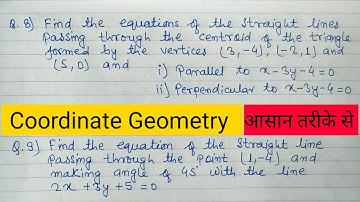 Q.8) Find the equations of the straight lines
passing through the centroid of the triangle
formed by the vertices (3,-4), (-2,1) and
(5,0) and
i) Parallel to x-3y-4=0
ii) Perpendicular to x-3y-4=0
Coordinate Geometry आसान तरीके से
Q.9) Find the equation of the straight line
passing through the point (1,-4) and
making angle of 45° with the line
2x+3y+5=0